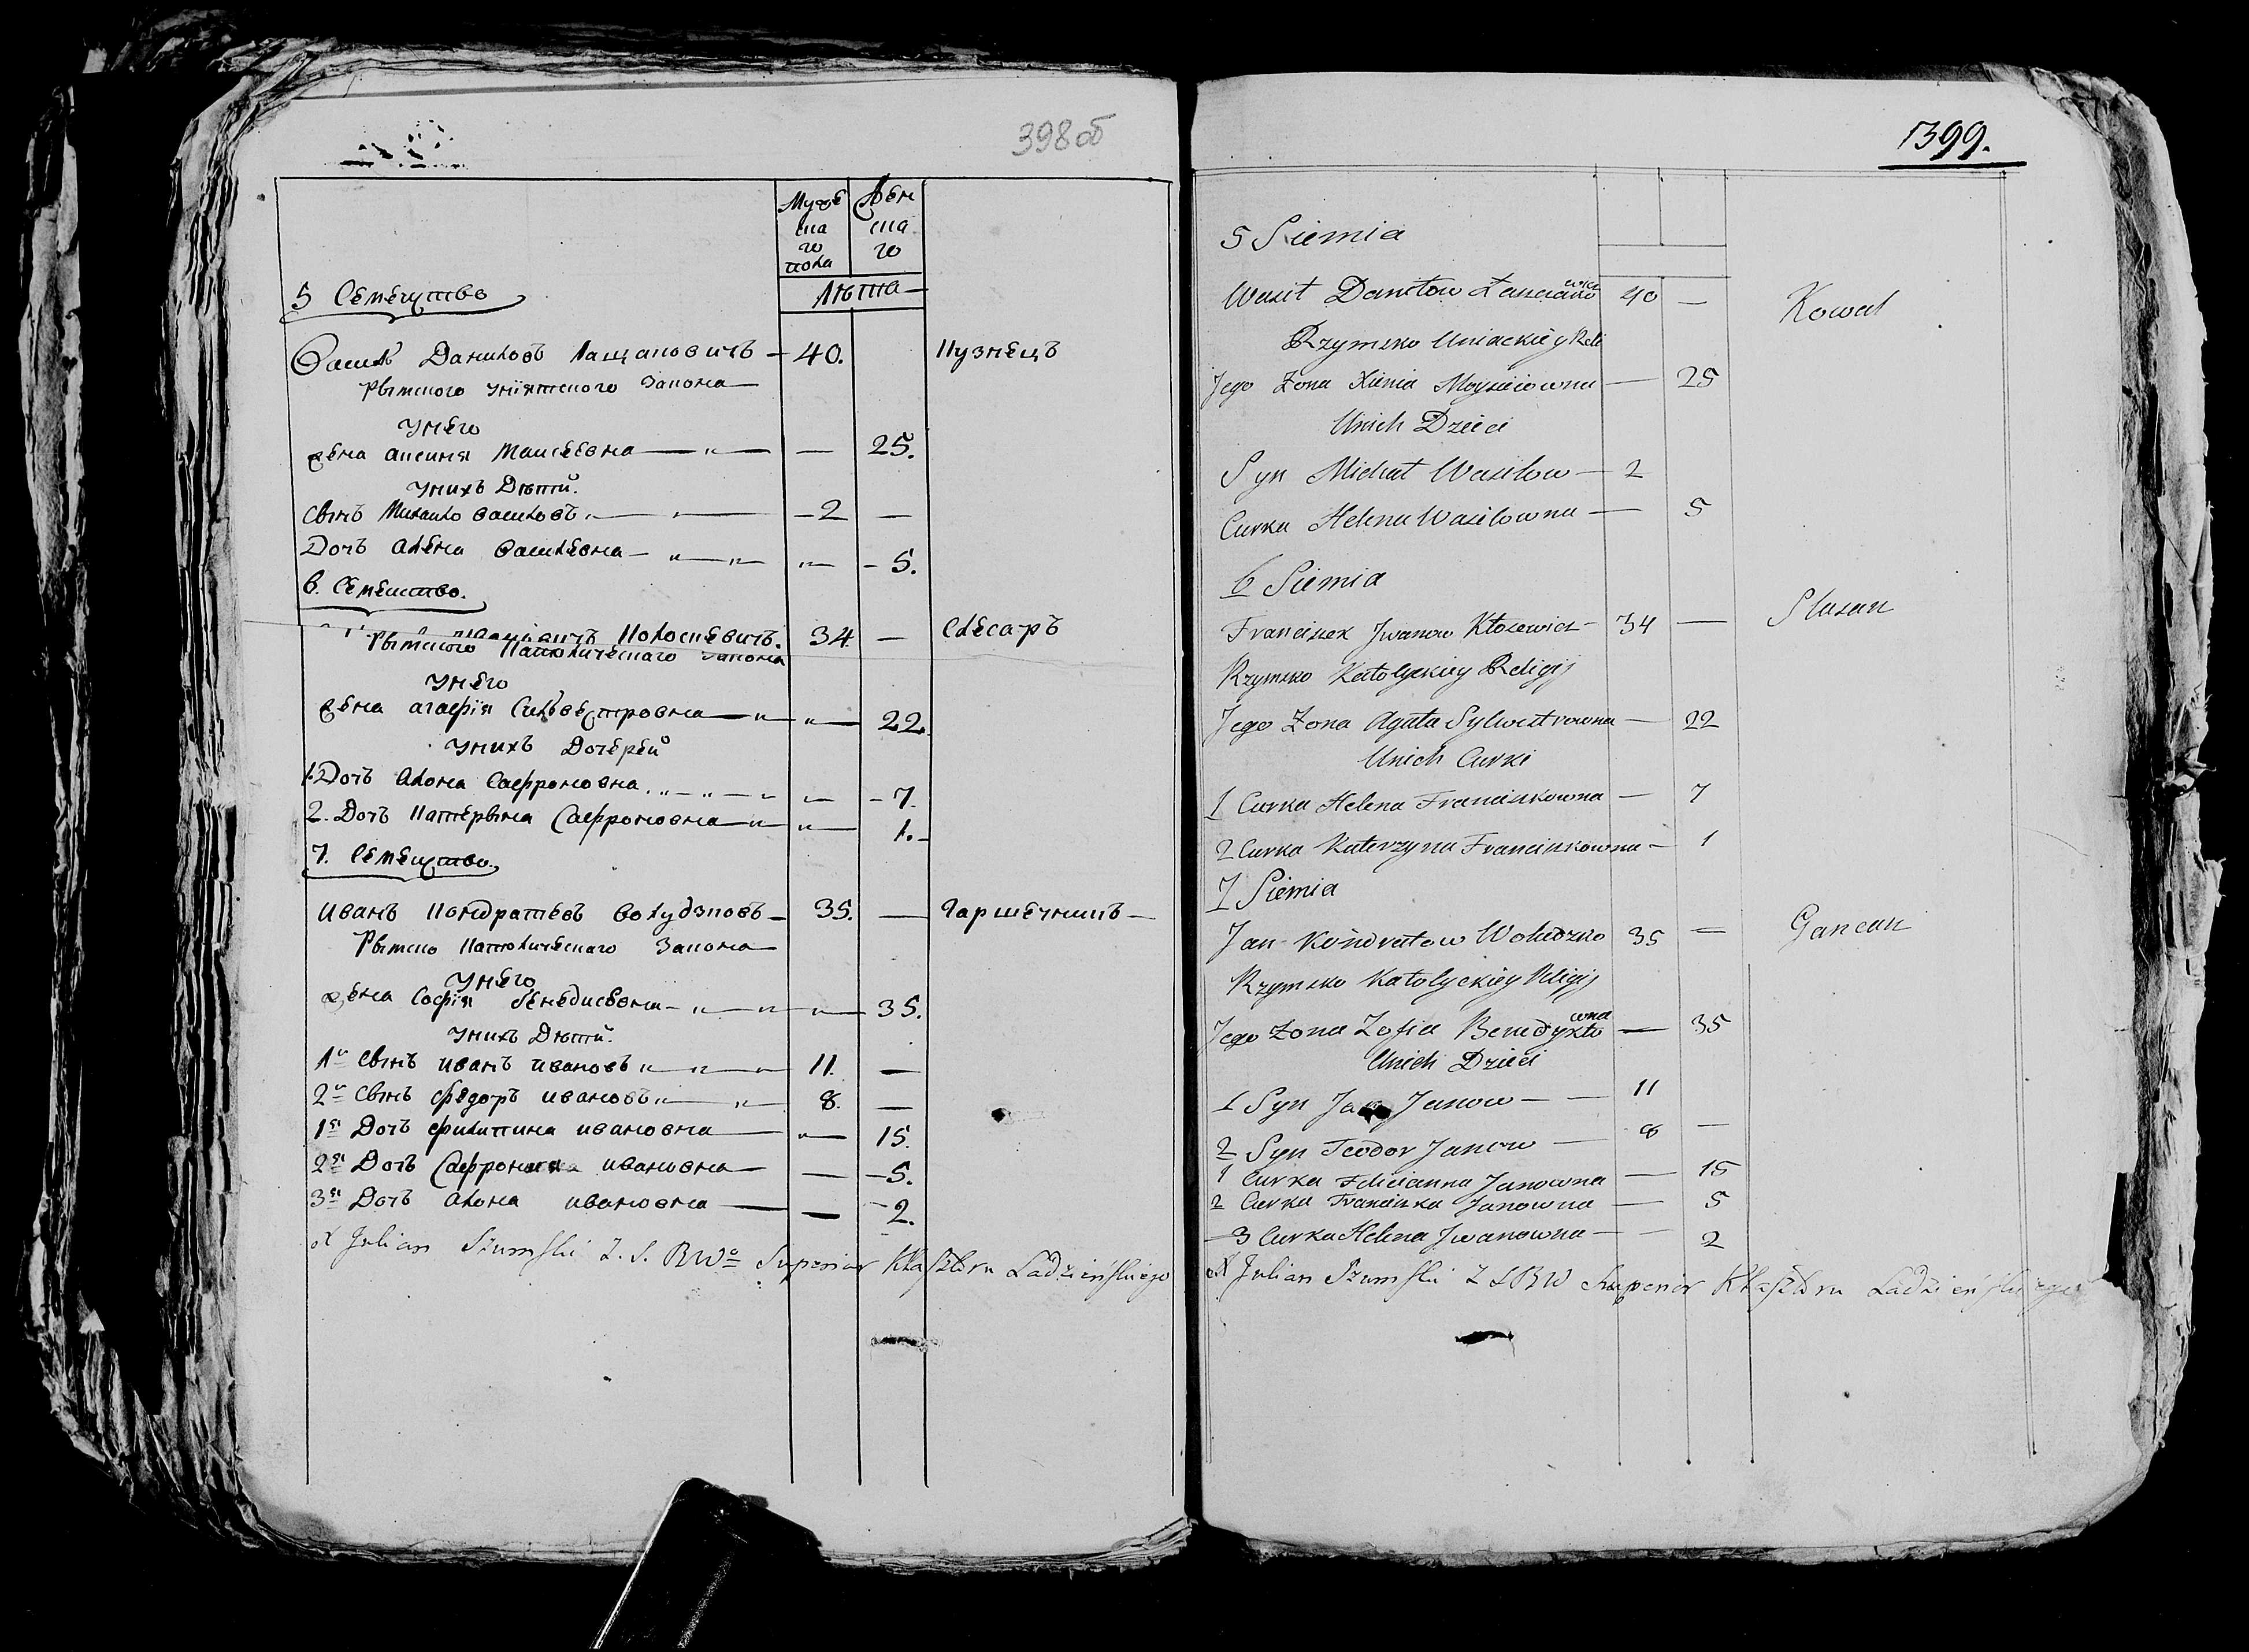 398об
Мужескаго пола
Женскаго
Лѣта
5 Семеуство
Василь Даниловъ Лащановичъ — 40. Кузнецъ
Рымского унiятского Закона
У него
жена Аксиня Маисеевна — „ — — 25.
У нихъ Дѣтй.
Сынъ Михайло Василовъ „ — „ — — 2 —
Дочъ Алена Василевна — „ — „ — „ — — 5.
6. Семеиство.
Колосневичъ. 34. — Слесаръ
Рымского Католическаго Закона
У него
жена агафiя Сильвестровна — „ — „ — 22.
У нихъ Дочерей
1. Дочъ Алона Сафроновна . „ — „ — „ — — 7.
2. Дочъ Катерына Сафроновна — „ — „ — 1. —
7. Семеуство.
Иванъ Кондратевъ Волудзковъ — 35. — Гаршечникъ —
Рымско Католическаго Закона
У него
жена Софiя Бенедисевна — „ — „ — „ — 35.
У нихъ Дѣтй.
1й Сынъ иванъ ивановъ „ — „ — „ — 11. —
2й Сынъ федоръ ивановъ „ — „ — 8. —
1я Дочъ филипина ивановна — „ — 15.
2я Дочъ ивановна — — — 5.
3я Дочъ Алона ивановна — — — 2.
X Julian Szumski Z. S. BWo Superior Klasztoru Ladzieńskiego
1399.
5 Siemia
Wasil Daniłow Laszczanowicz 40 — Kowal
Rzymsko Uniackiey Reli
Jego Żona Xienia Moysieiowna — 25
Unich Dzieci
Syn Michał Wasilow — 2
Curka Helena Wasilowna — 5
6 Siemia
Franciszek Jwanow Kłosewicz — 34 — Slusarz
Rzymsko Katolyckiey Religij
Jego Żona Agata Sylwestrowna — 22
Unich Curki
1 Curka Helena Franciszkowna — 7
2 Curka Katerzyna Franciszkowna — 1
7 Siemia
Jan Kondratow Woludzko 35 — Gancarz
Rzymsko Katolyckiey Religij
Jego Żona Zofia Benedyktowna — 35
Unich Dzieci
1 Syn Jan Janow — — 11
2 Syn Teodor Janow — 8 —
1 Curka Felicianna Janowna — 15
2 Curka Franciszka Janowna — 5
3 Curka Helena Jwanowna — — 2
X Julian Szumski Z S BW Superior Klasztoru Ladzieńskiego